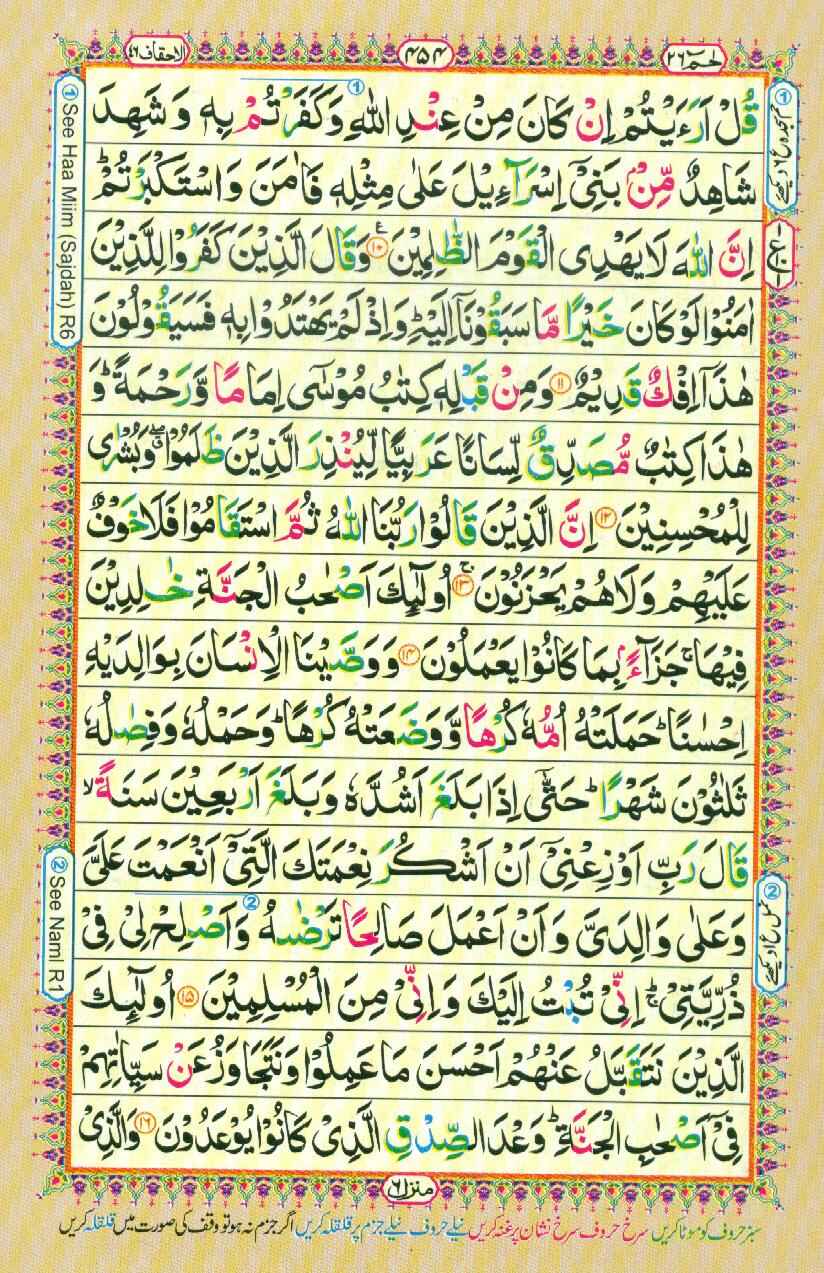 الاحقاف ٤٦
٤٥٤
حٰمٓ ٢٦
قُلْ اَرَءَيْتُمْ اِنْ كَانَ مِنْ عِنْدِ اللّٰهِ وَكَفَرْتُمْ بِهٖ وَ شَهِدَ
شَاهِدٌ مِّنْۢ بَنِيْۤ اِسْرَآءِيْلَ عَلٰى مِثْلِهٖ فَاٰمَنَ وَ اسْتَكْبَرْتُمْ ؕ
اِنَّ اللّٰهَ لَا يَهْدِى الْقَوْمَ الظّٰلِمِيْنَ ۝١٠ وَقَالَ الَّذِيْنَ كَفَرُوْا لِلَّذِيْنَ
اٰمَنُوْا لَوْ كَانَ خَيْرًا مَّا سَبَقُوْنَاۤ اِلَيْهِ ؕ وَ اِذْ لَمْ يَهْتَدُوْا بِهٖ فَسَيَقُوْلُوْنَ
هٰذَاۤ اِفْكٌ قَدِيْمٌ ۝١١ وَمِنْ قَبْلِهٖ كِتٰبُ مُوْسٰۤى اِمَامًا وَّرَحْمَةً ؕ وَ
هٰذَا كِتٰبٌ مُّصَدِّقٌ لِّسَانًا عَرَبِيًّا لِّيُنْذِرَ الَّذِيْنَ ظَلَمُوْا ۖۗ وَبُشْرٰى
لِلْمُحْسِنِيْنَ ۝١٢ اِنَّ الَّذِيْنَ قَالُوْا رَبُّنَا اللّٰهُ ثُمَّ اسْتَقَامُوْا فَلَا خَوْفٌ
عَلَيْهِمْ وَلَا هُمْ يَحْزَنُوْنَ ۝١٣ اُولٰٓئِكَ اَصْحٰبُ الْجَنَّةِ خٰلِدِيْنَ
فِيْهَا ۚ جَزَآءًۢ بِمَا كَانُوْا يَعْمَلُوْنَ ۝١٤ وَ وَصَّيْنَا الْاِنْسَانَ بِوَالِدَيْهِ
اِحْسٰنًا ؕ حَمَلَتْهُ اُمُّهٗ كُرْهًا وَّ وَضَعَتْهُ كُرْهًا ؕ وَحَمْلُهٗ وَفِصٰلُهٗ
ثَلٰثُوْنَ شَهْرًا ؕ حَتّٰۤى اِذَا بَلَغَ اَشُدَّهٗ وَبَلَغَ اَرْبَعِيْنَ سَنَةً ۙ
قَالَ رَبِّ اَوْزِعْنِيْۤ اَنْ اَشْكُرَ نِعْمَتَكَ الَّتِيْۤ اَنْعَمْتَ عَلَيَّ
وَعَلٰى وَالِدَيَّ وَ اَنْ اَعْمَلَ صَالِحًا تَرْضٰىهُ وَاَصْلِحْ لِيْ فِيْ
ذُرِّيَّتِيْ ؕۚ اِنِّيْ تُبْتُ اِلَيْكَ وَ اِنِّيْ مِنَ الْمُسْلِمِيْنَ ۝١٥ اُولٰٓئِكَ
الَّذِيْنَ نَتَقَبَّلُ عَنْهُمْ اَحْسَنَ مَا عَمِلُوْا وَنَتَجَاوَزُ عَنْ سَيِّاٰتِهِمْ
فِيْۤ اَصْحٰبِ الْجَنَّةِ ؕ وَعْدَ الصِّدْقِ الَّذِيْ كَانُوْا يُوْعَدُوْنَ ۝١٦ وَالَّذِيْ
① See Haa Miim (Sajdah) R6
② See Naml R1
منزل ٦
سبز حروف کو موٹا کریں سرخ حروف سرخ نشان پر غنہ کریں نیلے حروف نیلے جزم پر قلقلہ کریں اگر جزم نہ ہو تو وقف کی صورت میں قلقلہ کریں